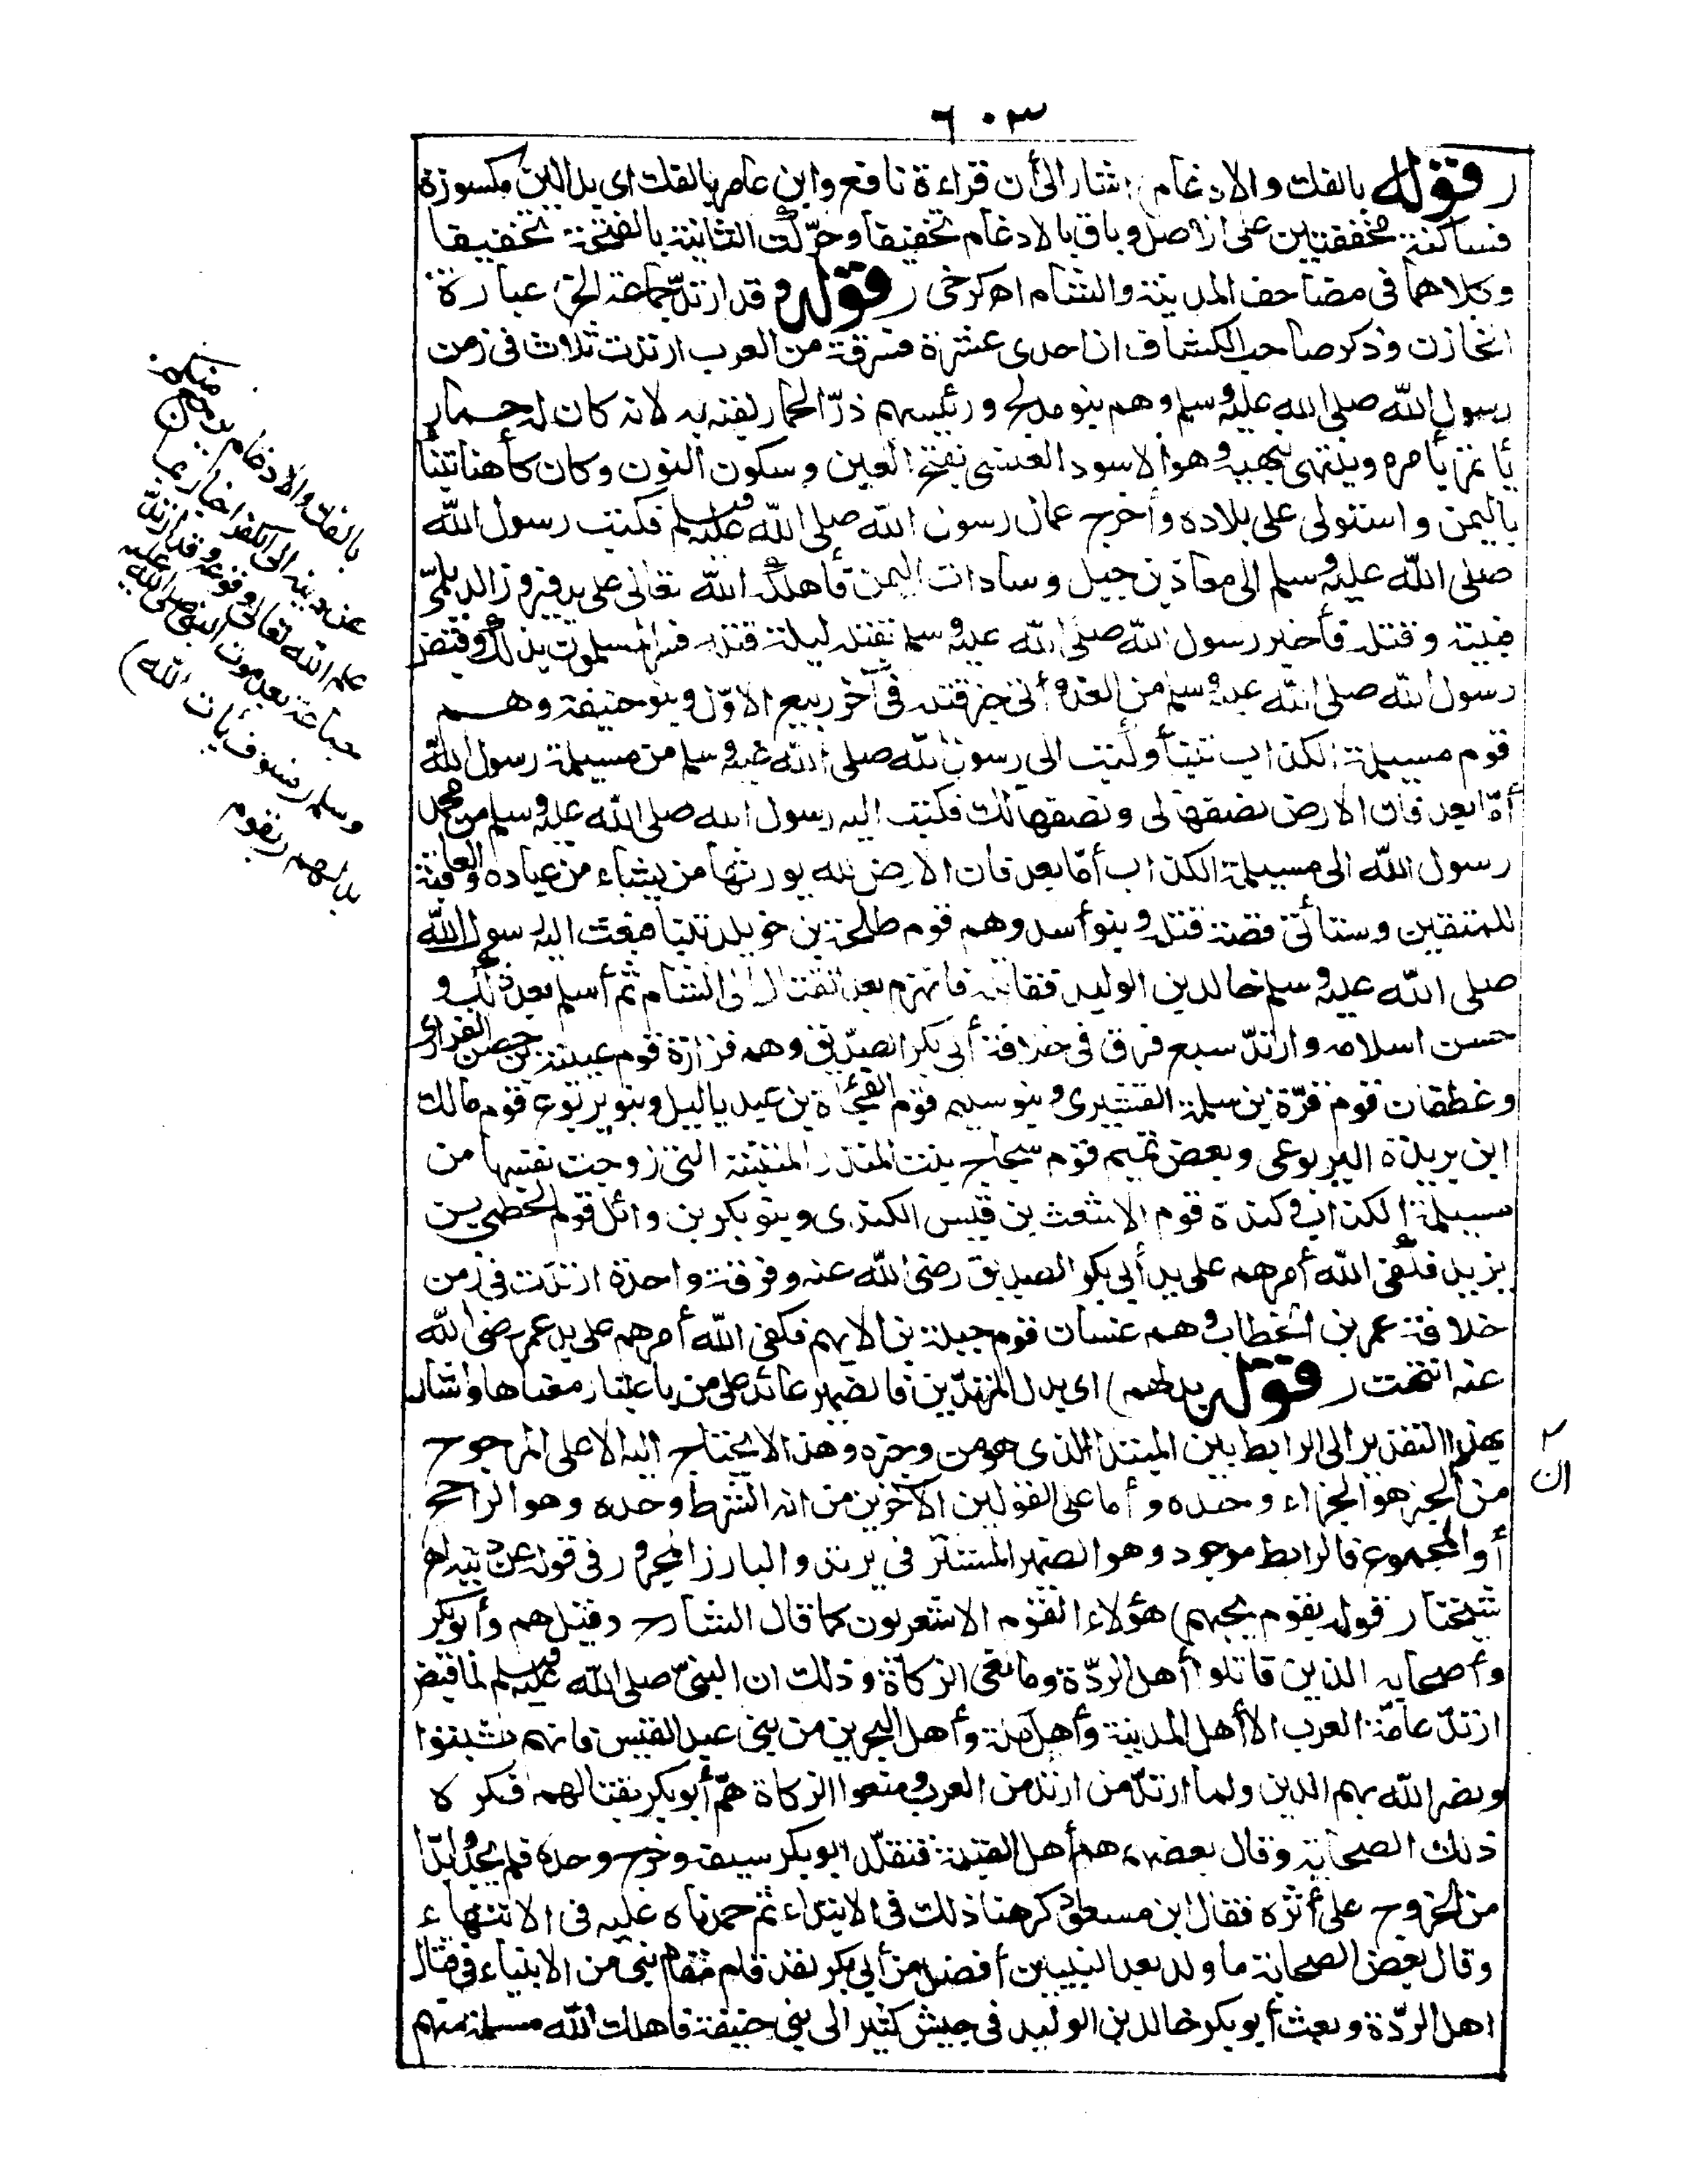 ٦٠٣
(قوله بالفك والادغام) اشار الى أن قراءة نافع وابن عامر بالفك اى بدالين مكسورة
فساكنة مخففتين على الاصل وباقى بالادغام تخفيفا وحرّكت الثانية بالفتحة تخفيفا
وكلاهما فى مصاحف المدينة والشام اه كرخى (قوله وقد ارتدّ جماعة الخ) عبارة
الخازن وذكر صاحب الكشاف ان احدى عشرة فرقة من العرب ارتدت ثلاث فى زمن
رسول الله صلى الله عليه وسلم وهم بنو مدلج ورئيسهم ذو الحمار لقب به لانه كان له حمار
يأتمر بأمره وينتهى بنهيه وهو الاسود العنسى بفتح العين وسكون النون وكان كاهنا تنبأ
باليمن واستولى على بلاده وأخرج عمال رسول الله صلى الله عليه وسلم فكتب رسول الله
صلى الله عليه وسلم الى معاذ بن جبل وسادات اليمن فأهلكه الله تعالى على يد فيروز الديلمىّ
فبيته وقتله فأخبر رسول الله صلى الله عليه وسلم بقتله ليلة قتله فسر المسلمون بذلك وقبض
رسول الله صلى الله عليه وسلم من الغد وأتى خبر قتله فى آخر ربيع الاوّل وبنو حنيفة وهم
قوم مسيلمة الكذاب تنبأ وكتب الى رسول الله صلى الله عليه وسلم من مسيلمة رسول الله
أمّا بعد فان الارض نصفها لى ونصفها لك فكتب اليه رسول الله صلى الله عليه وسلم من محمد
رسول الله الى مسيلمة الكذاب أمّا بعد فان الارض لله يورثها من يشاء من عباده والعاقبة
للمتقين وستأتى قصة قتله وبنو أسد وهم قوم طلحة بن خويلد تنبأ فبعث اليه رسول الله
صلى الله عليه وسلم خالد بن الوليد فقاتله فانهزم بعد القتال الى الشام ثم أسلم بعد ذلك و
حسن اسلامه وارتدّ سبع فرق فى خلافة أبى بكر الصدّيق وهم فزارة قوم عيينة بن حصن الفزارى
وغطفان قوم قرّة بن سلمة القشيرى وبنو سليم قوم الفجاءة بن عبد ياليل وبنو يربوع قوم مالك
ابن بريدة اليربوعى وبعض تميم قوم سجاح بنت المنذر المتنبئة التى زوجت نفسها من
مسيلمة الكذاب وكندة قوم الاشعث بن قيس الكندى وبنو بكر بن وائل قوم الحطمى بن
يزيد فكفى الله أمرهم على يد أبى بكر الصديق رضى الله عنه وفرقة واحدة ارتدت فى زمن
خلافة عمر بن الخطاب وهم غسان قوم جبلة بن الايهم فكفى الله أمرهم على يد عمر رضى الله
عنه انتهت (قوله بدلهم) اى بدل المرتدّين فالضمير عائد على من باعتبار معناها واشار
بهذا التقدير الى الرابط بين المبتدا الذى هو من وخبره وهذا لا يحتاج اليه الا على المرجوح
من ان الخبر هو الجزاء وحده وأما على القولين الآخرين من انه الشرط وحده وهو الراجح
أو المجموع فالرابط موجود وهو الضمير المستتر فى يرتد والبارز المجرور فى قوله عن دينه اه
شيخنا (قوله بقوم يحبهم) هؤلاء القوم الاشعريون كما قال الشارح وقيل هم وأبو بكر
وأصحابه الذين قاتلوا أهل الردّة ومانعى الزكاة وذلك ان النبىّ صلى الله عليه وسلم لما قبض
ارتدّ عامّة العرب الا أهل المدينة وأهل مكة وأهل البحرين من بنى عبد القيس فانهم ثبتوا
ونصر الله بهم الدين ولما ارتدّ من ارتد من العرب ومنعوا الزكاة همّ أبو بكر بقتالهم فكره
ذلك الصحابة وقال بعضهم هم أهل القبلة فتقلّد ابو بكر سيفه وخرج وحده فلم يجدوا بدّا
من الخروج على أثره فقال ابن مسعود كرهنا ذلك فى الابتداء ثم حمدناه عليه فى الانتهاء
وقال بعض الصحابة ما ولد بعد النبيين أفضل من أبى بكر لقد قام مقام نبى من الانبياء فى قتال
اهل الردّة وبعث أبو بكر خالد بن الوليد فى جيش كثير الى بنى حنيفة فاهلك الله مسيلمة منهم
بالفك والادغام يرجع (منكم
عن دينه) الى الكفر اخبار بما
علم الله تعالى وقوعه وقد ارتدّ
جماعة بعد موت النبى صلى الله عليه
وسلم (فسوف يأت الله)
بدلهم (بقوم
ان